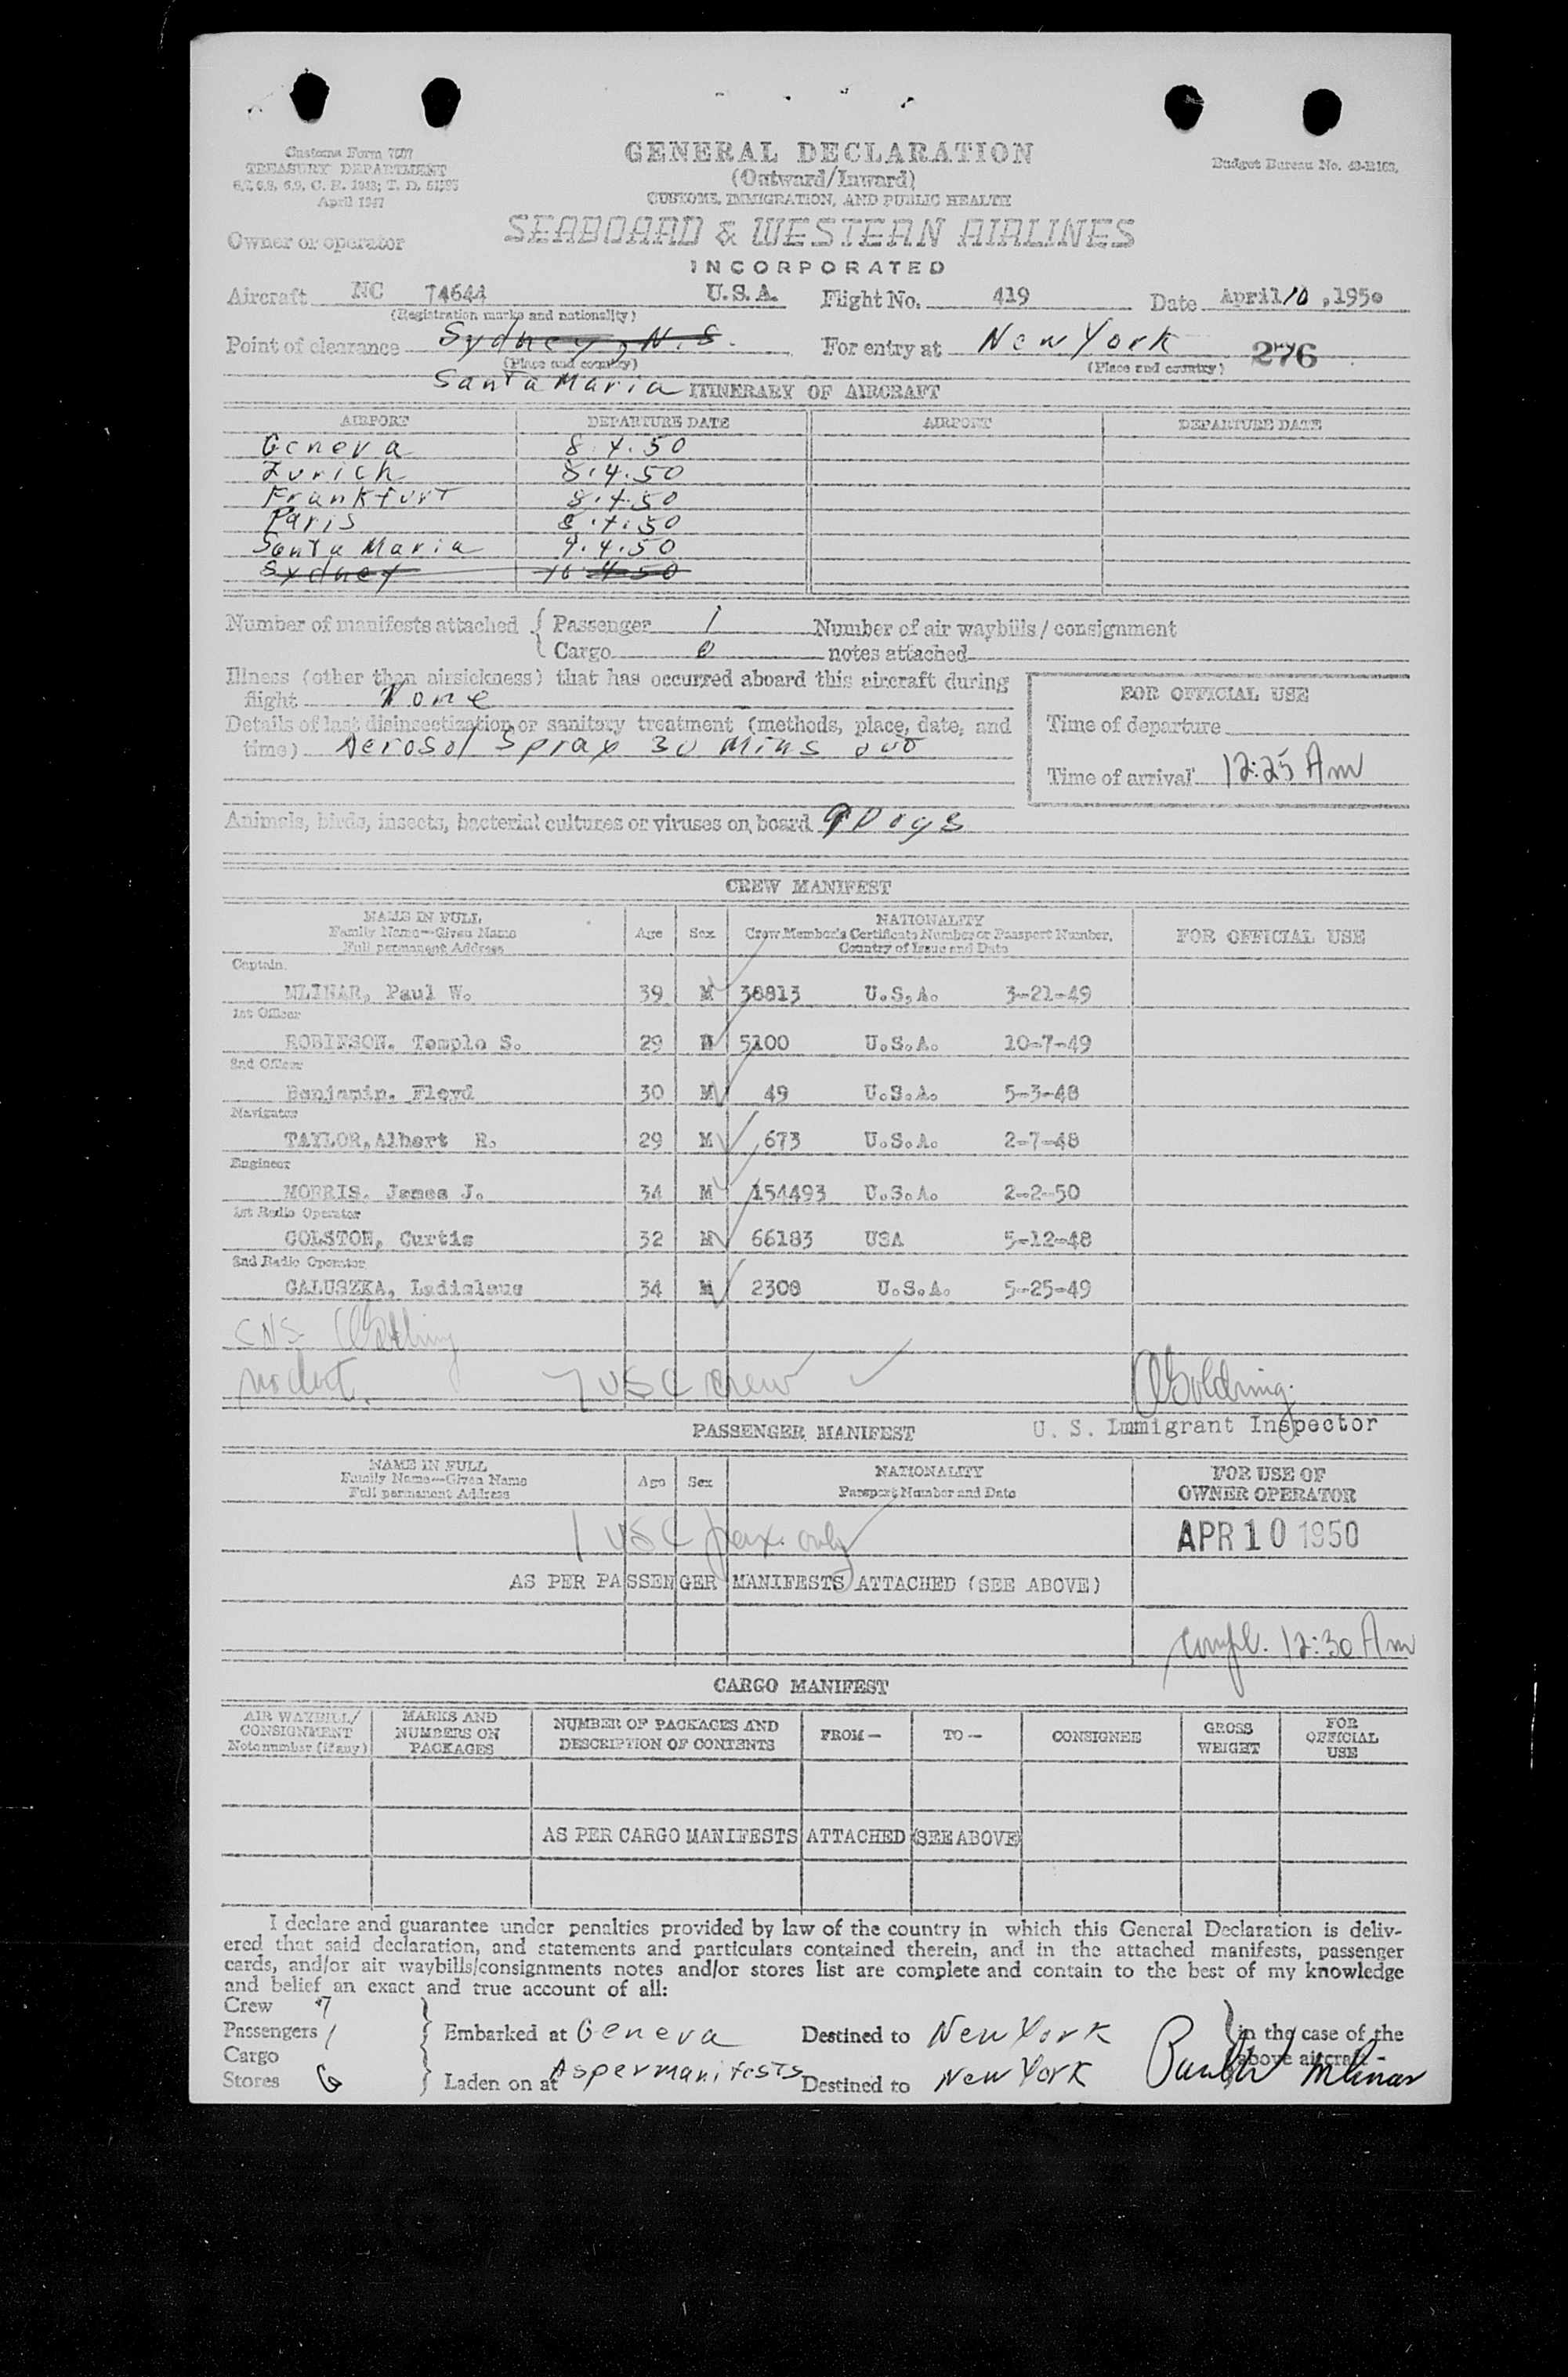 Customs Form 7507
TREASURY DEPARTMENT
April 1947
GENERAL DECLARATION
(Outward/Inward)
CUSTOMS, IMMIGRATION, AND PUBLIC HEALTH
Budget Bureau No.
Owner or operator
SEABOARD & WESTERN AIRLINES
INCORPORATED
Aircraft NC 74644 U.S.A. Flight No. 419 Date April 10, 1950
(Registration marks and nationality)
Point of clearance Sydney, N.S. For entry at New York
(Place and country) (Place and country) 276
Santa Maria ITINERARY OF AIRCRAFT
AIRPORT DEPARTURE DATE AIRPORT DEPARTURE DATE
Geneva 8.4.50
Zurich 8.4.50
Frankfurt 8.4.50
Paris 8.4.50
Santa Maria 9.4.50
Sydney 10 4 50
Number of manifests attached { Passenger 1 Number of air waybills / consignment
Cargo 0 notes attached
Illness (other than airsickness) that has occurred aboard this aircraft during
flight None
Details of last disinsectization or sanitary treatment (methods, place, date, and
time) Aerosol Spray 30 Mins out
FOR OFFICIAL USE
Time of departure
Time of arrival 12:25 Am
Animals, birds, insects, bacterial cultures or viruses on board 9 Dogs
CREW MANIFEST
NAME IN FULL
Family Name—Given Name
Full permanent Address
Age Sex
NATIONALITY
Crew Member's Certificate Number or Passport Number,
Country of Issue and Date
FOR OFFICIAL USE
Captain
MLINAR, Paul W. 39 M 38813 U.S.A. 3-21-49
1st Officer
ROBINSON. Temple S. 29 M 5100 U.S.A. 10-7-49
2nd Officer
Benjamin. Floyd 30 M 49 U.S.A. 5-3-48
Navigator
TAYLOR, Albert E. 29 M 673 U.S.A. 2-7-48
Engineer
MORRIS. James J. 34 M 154493 U.S.A. 2-2-50
1st Radio Operator
GOLSTON, Curtis 32 M 66183 USA 5-12-48
2nd Radio Operator
GALUSZKA, Ladislaus 34 M 2308 U.S.A. 5-25-49
7 USC crew
Goldring
U. S. Immigrant Inspector
PASSENGER MANIFEST
NAME IN FULL
Family Name—Given Name
Full permanent Address
Age Sex
NATIONALITY
Passport Number and Date
FOR USE OF
OWNER OPERATOR
1 USC pax. only
APR 10 1950
AS PER PASSENGER MANIFESTS ATTACHED (SEE ABOVE)
compl. 12:30 Am
CARGO MANIFEST
AIR WAYBILL/
CONSIGNMENT
Note number (if any)
MARKS AND
NUMBERS ON
PACKAGES
NUMBER OF PACKAGES AND
DESCRIPTION OF CONTENTS
FROM— TO— CONSIGNEE
GROSS
WEIGHT
FOR
OFFICIAL
USE
AS PER CARGO MANIFESTS ATTACHED (SEE ABOVE)
I declare and guarantee under penalties provided by law of the country in which this General Declaration is deliv-
ered that said declaration, and statements and particulars contained therein, and in the attached manifests, passenger
cards, and/or air waybills/consignments notes and/or stores list are complete and contain to the best of my knowledge
and belief an exact and true account of all:
Crew 7
Passengers 1 Embarked at Geneva Destined to New York in the case of the
Cargo above aircraft-
Stores Laden on at As per manifests Destined to New York Paul W Mlinar